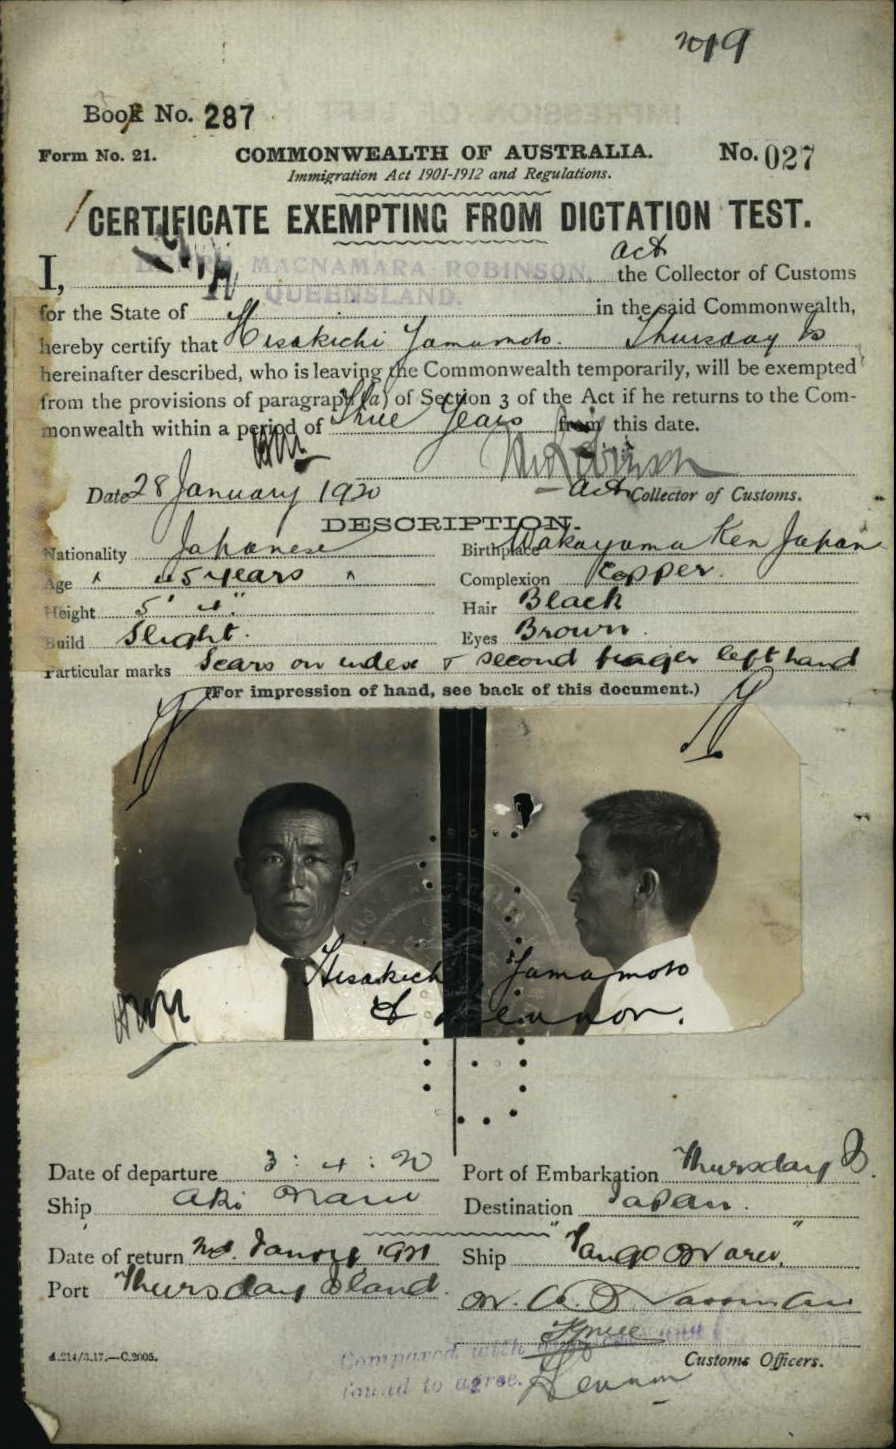 Book No. 287
Form No. 21. COMMONWEALTH OF AUSTRALIA. No. 027
Immigration Act 1901-1912 and Regulations.
CERTIFICATE EXEMPTING FROM DICTATION TEST.
act
I, MACNAMARA ROBINSON, the Collector of Customs
QUEENSLAND.
for the State of in the said Commonwealth,
hereby certify that Hisakichi Yamamoto. Thursday Is
hereinafter described, who is leaving the Commonwealth temporarily, will be exempted
from the provisions of paragraph (a) of Section 3 of the Act if he returns to the Com-
monwealth within a period of Three Years from this date.
Date 28 January 1920 Act Collector of Customs.
DESCRIPTION.
Nationality Japanese Birthplace Wakayama Ken Japan
Age 45 years Complexion Copper.
Height 5' 4" Hair Black
Build Slight. Eyes Brown.
Particular marks Scars on index & second finger left hand
(For impression of hand, see back of this document.)
Hisakichi Yamamoto
Date of departure 3 : 4 : 20 Port of Embarkation Thursday Is.
Ship Aki Maru Destination Japan.
Date of return Jany 1921 Ship "Tango Maru"
Port Thursday Island.
Compared with
found to agree.
4.214/3.17.—C.2005. Customs Officers.